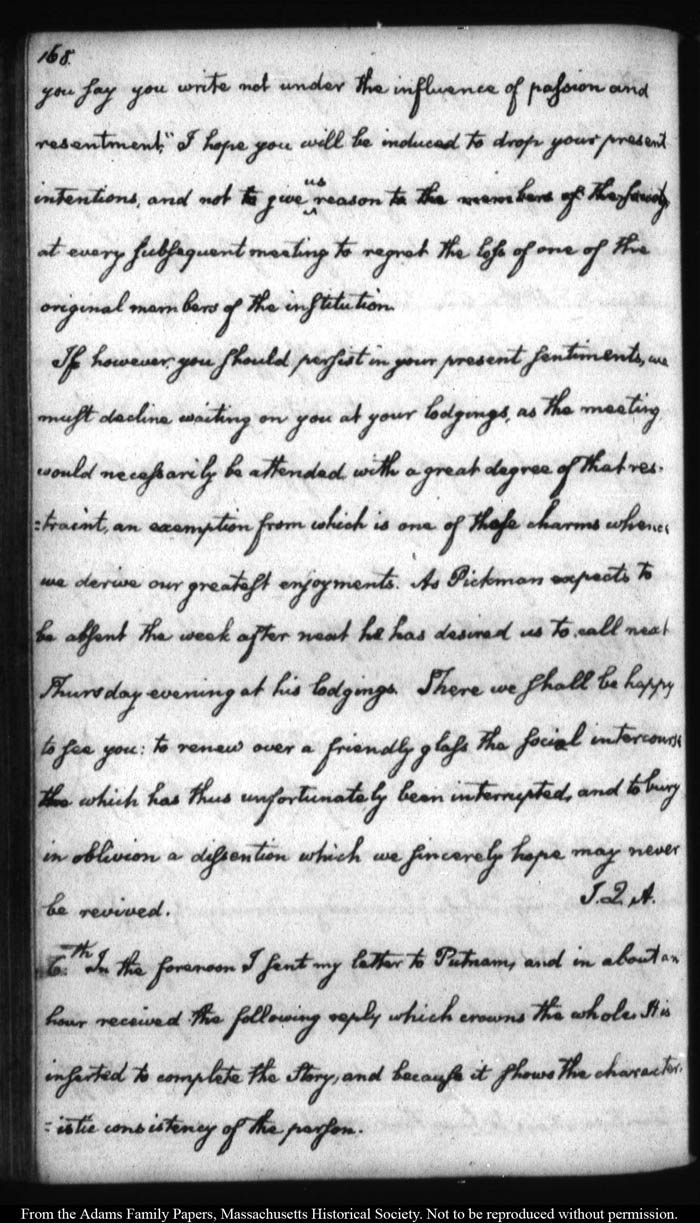 168.
you say you write not under the influence of passion and
resentment;" I hope you will be induced to drop your present
intentions, and not to give us reason to the members of the society
at every subsequent meeting to regret the loss of one of the
original members of the institution.
If however, you should persist in your present sentiments, we
must decline waiting on you at your lodgings, as the meeting
would necessarily be attended with a great degree of that res-
=traint, an exemption from which is one of those charms whence
we derive our greatest enjoyments. As Pickman expects to
be absent the week after next he has desired us to call next
Thursday evening at his lodgings. There we shall be happy
to see you: to renew over a friendly glass the social intercourse
the which has thus unfortunately been interrupted, and to bury
in oblivion a dissention which we sincerely hope may never
be revived. J. Q. A.
6.th In the forenoon I sent my letter to Putnam, and in about an
hour received the following reply which crowns the whole. It is
inserted to complete the story, and because it shows the character-
=istic consistency of the person.
From the Adams Family Papers, Massachusetts Historical Society. Not to be reproduced without permission.